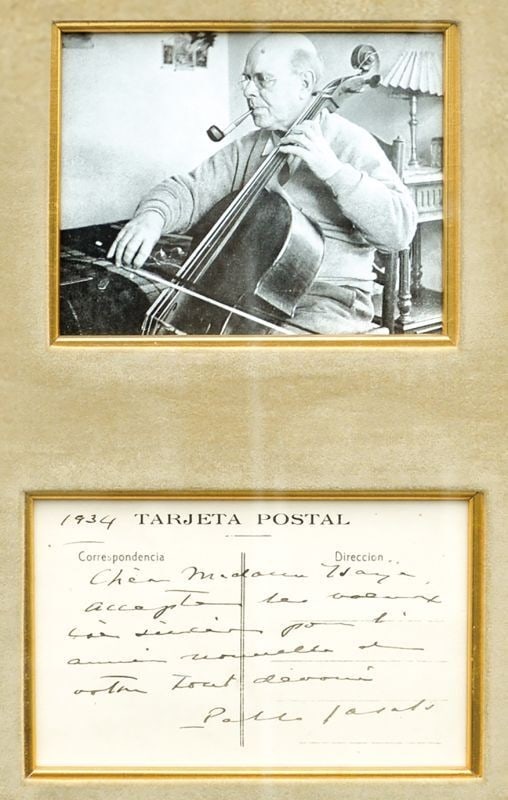 1934 TARJETA POSTAL
Correspondencia Direccion
Chère Madame Ysaÿe,
acceptez les voeux
très sincères pour l'
année nouvelle de
votre tout dévoué
Pablo Casals